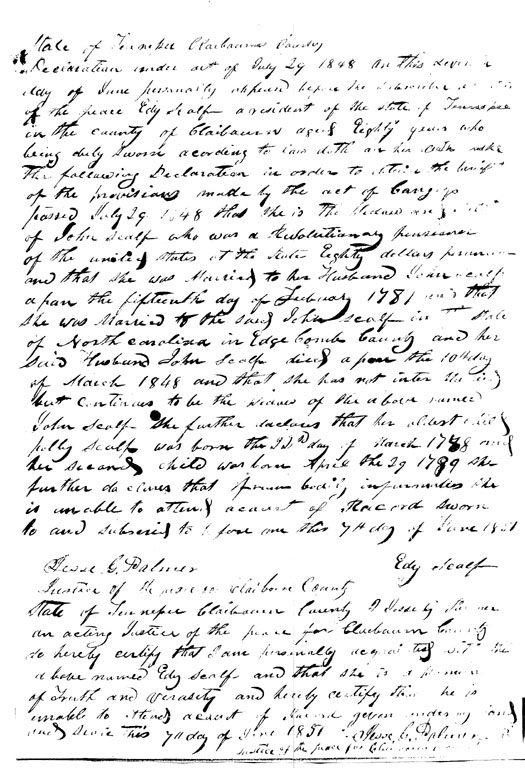 State of Tennessee Claibourne County
Declaration under act of July 29 1848 On this
day of June personally appeared before the Subscriber
of the peace Edy Scalf a resident of the State of Tennessee
in the county of Claibourn aged Eighty years who
being duly Sworn acording to law doth on her oath make
the following Declaration in order to obtain the benefit
of the provisions made by the act of Congress
passed July 29 1848 that she is the Widow
of John Scalf who was a Revolutionary pensioner
of the united States at the Rate Eighty dollars
and that she was Married to her Husband John Scalf
apon the fifteenth day of February 1781 and that
She was Married to the said John Scalf in the State
of North carolina in Edge Comb County and her
Said Husband John Scalf died apon the 10th day
of March 1848 and that she has not inter
but continues to be the widow of the above named
John Scalf She further declares that her oldest child
polly Scalf was born the day of March 1788 and
her second child was born April the 29 1789 she
further declares that from bodily infirmities She
is unable to attend acourt of Racord sworn
to and subscried to before me this 7th day of June 1851
Jesse G. Palmer Edy Scalf
Justice of the peace for Claiborn County
State of Tennessee Claibourn County I Jesse G Palmer
an acting Justice of the peace for Claibourn County
do hereby certify that I am personally acquainted with the
above named Edy Scalf and that she is a
of Truth and verasity and hereby certify that she is
unable to attend acourt of Racord given under my hand
and this 7th day of June 1851 Jesse G. Palmer
Justice of the peace for